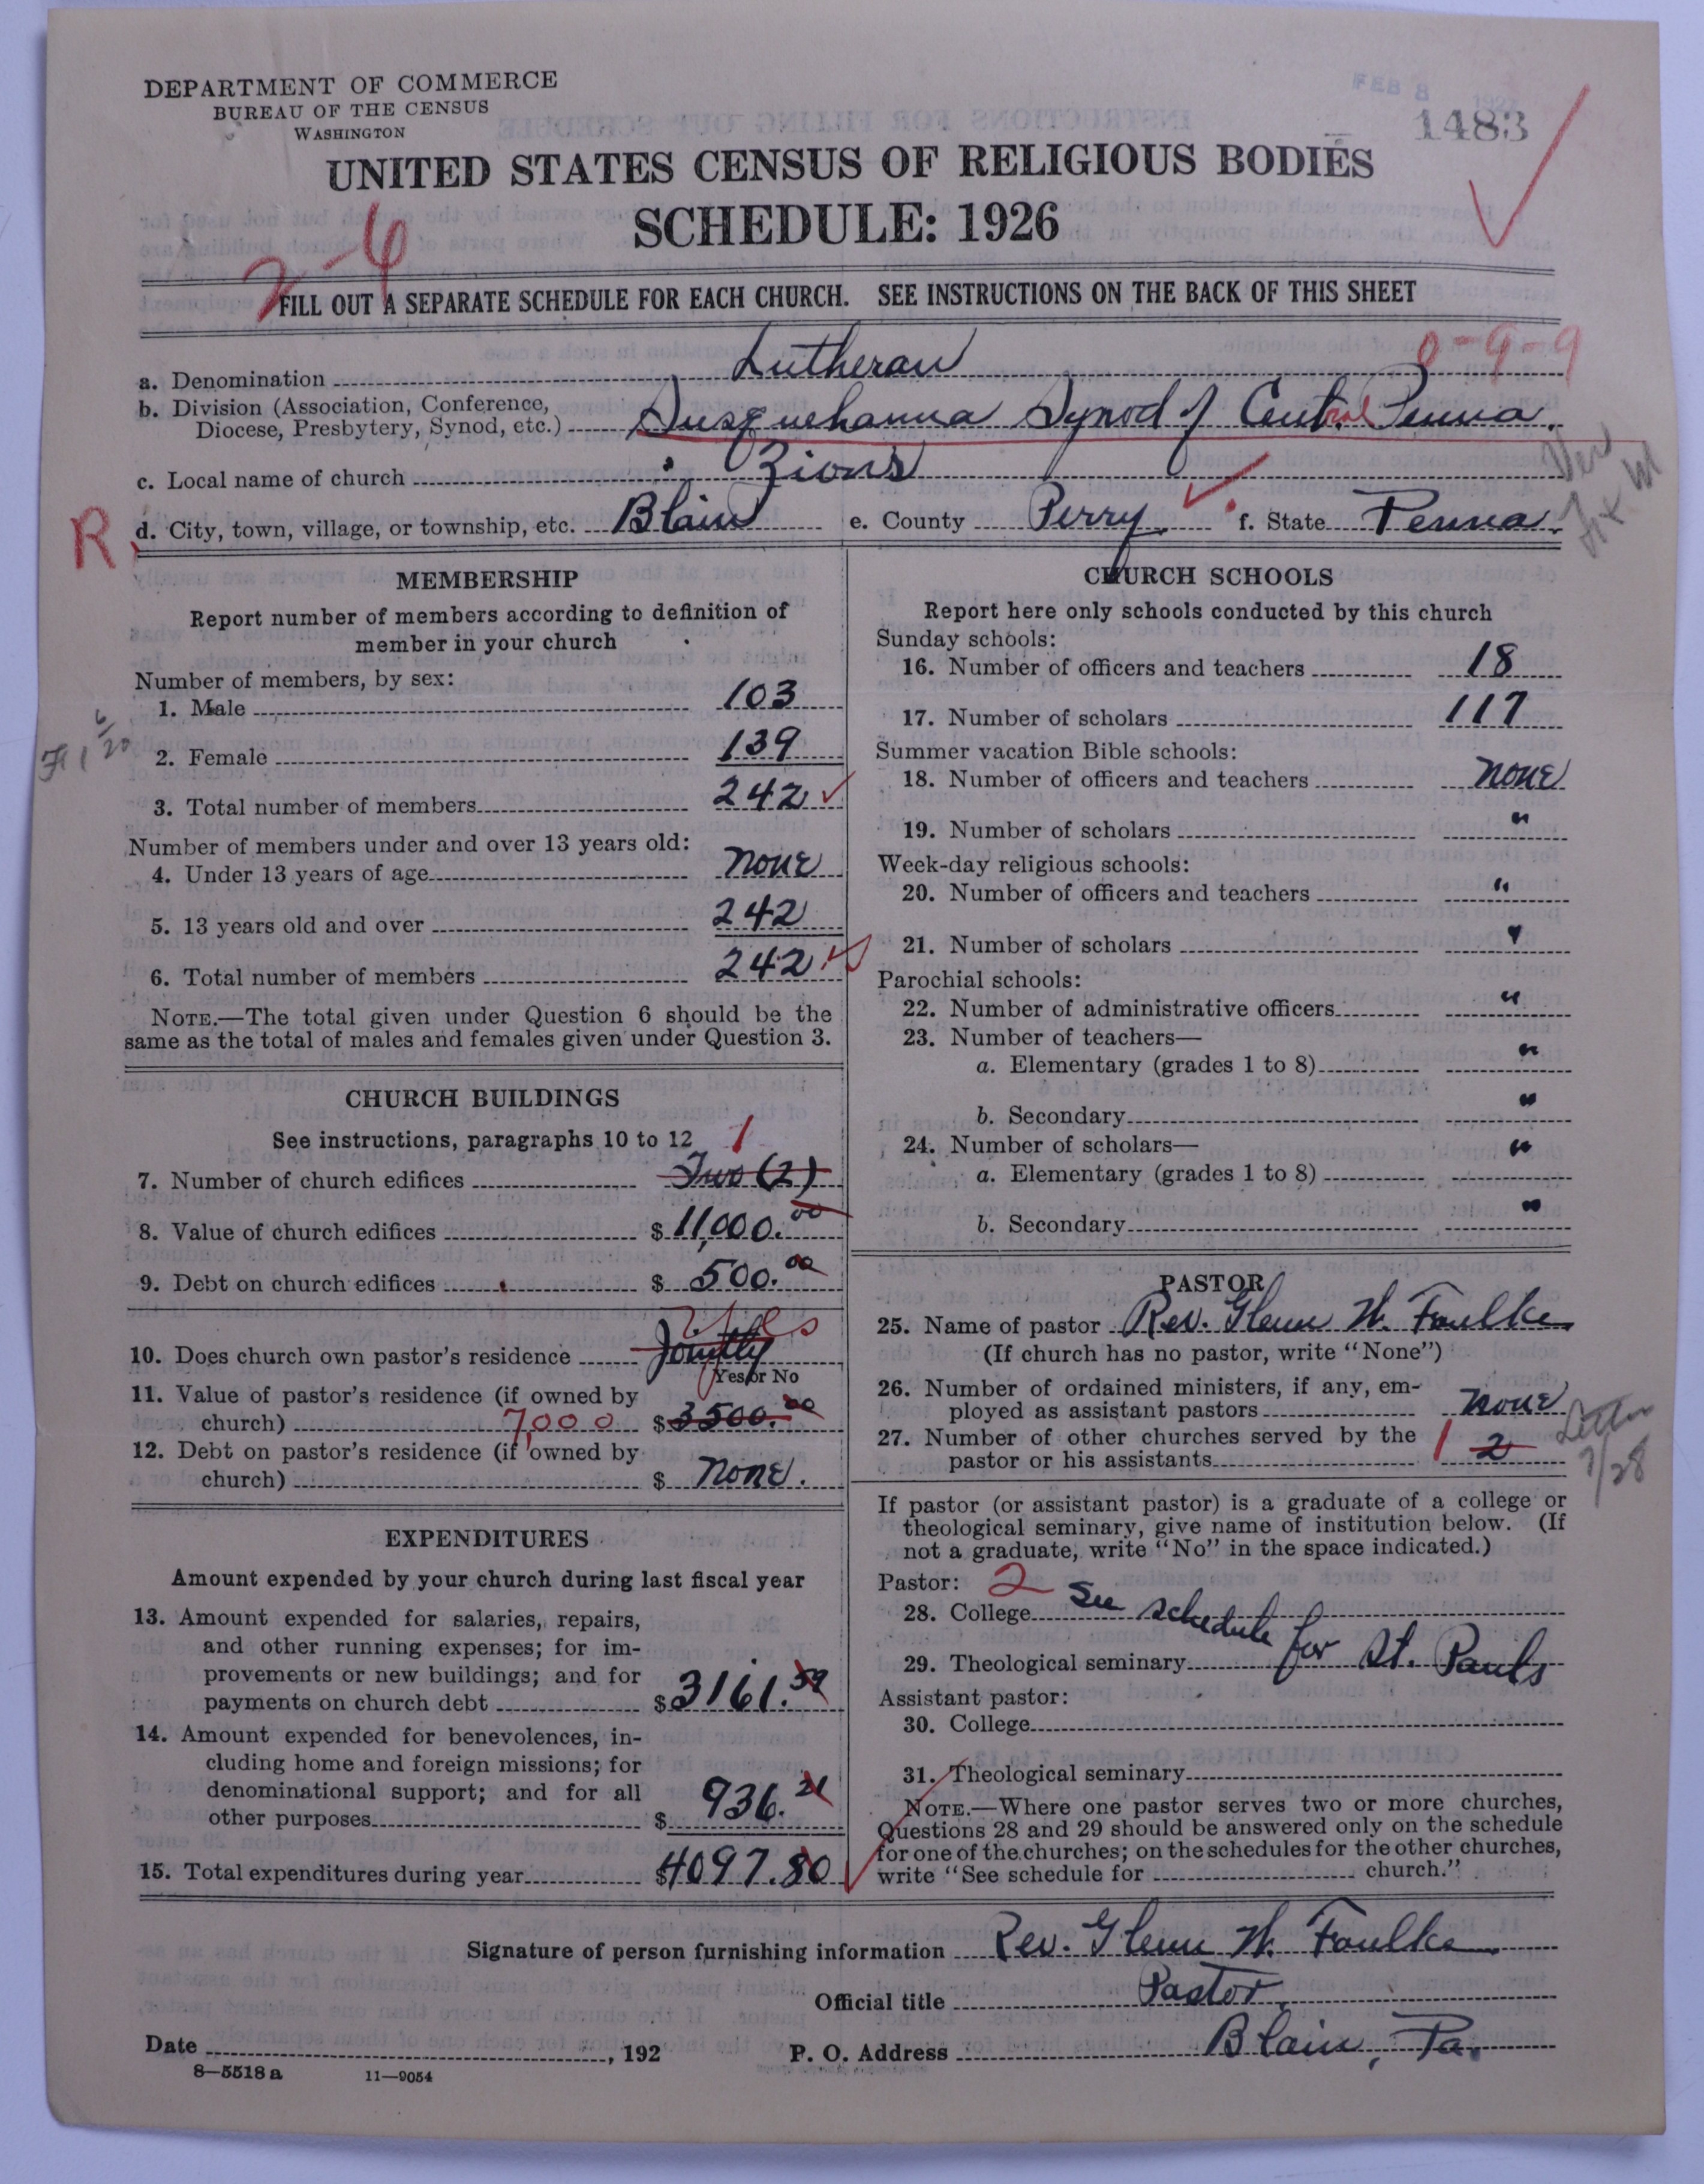 DEPARTMENT OF COMMERCE
BUREAU OF THE CENSUS
WASHINGTON
FEB 8 1927
1483
UNITED STATES CENSUS OF RELIGIOUS BODIES
SCHEDULE: 1926
2-6
FILL OUT A SEPARATE SCHEDULE FOR EACH CHURCH. SEE INSTRUCTIONS ON THE BACK OF THIS SHEET
0-9-9
a. Denomination Lutheran
b. Division (Association, Conference, Diocese, Presbytery, Synod, etc.) Susquehanna Synod of Central Penna.
c. Local name of church Zions
R d. City, town, village, or township, etc. Blain e. County Perry f. State Penna.
MEMBERSHIP
Report number of members according to definition of
member in your church
Number of members, by sex:
1. Male 103
2. Female 139
3. Total number of members 242
Number of members under and over 13 years old:
4. Under 13 years of age none
5. 13 years old and over 242
6. Total number of members 242
NOTE.—The total given under Question 6 should be the
same as the total of males and females given under Question 3.
CHURCH BUILDINGS
See instructions, paragraphs 10 to 12 1
7. Number of church edifices Two (2)
8. Value of church edifices $ 11,000.00
9. Debt on church edifices $ 500.00
yes
10. Does church own pastor's residence Jointly
Yes or No
11. Value of pastor's residence (if owned by
church) 7,000 $ 3500.00
12. Debt on pastor's residence (if owned by
church) $ none.
EXPENDITURES
Amount expended by your church during last fiscal year
13. Amount expended for salaries, repairs,
and other running expenses; for im-
provements or new buildings; and for
payments on church debt $ 3161.59
14. Amount expended for benevolences, in-
cluding home and foreign missions; for
denominational support; and for all
other purposes $ 936.21
15. Total expenditures during year $ 4097.80
CHURCH SCHOOLS
Report here only schools conducted by this church
Sunday schools:
16. Number of officers and teachers 18
17. Number of scholars 117
Summer vacation Bible schools:
18. Number of officers and teachers none
19. Number of scholars "
Week-day religious schools:
20. Number of officers and teachers "
21. Number of scholars "
Parochial schools:
22. Number of administrative officers "
23. Number of teachers—
a. Elementary (grades 1 to 8) "
b. Secondary "
24. Number of scholars— "
a. Elementary (grades 1 to 8)
b. Secondary "
PASTOR
25. Name of pastor Rev. Glenn W. Foulke
(If church has no pastor, write "None")
26. Number of ordained ministers, if any, em-
ployed as assistant pastors none
27. Number of other churches served by the
pastor or his assistants 1 2
Letter
7/28
If pastor (or assistant pastor) is a graduate of a college or
theological seminary, give name of institution below. (If
not a graduate, write "No" in the space indicated.)
Pastor: 2
28. College See schedule
29. Theological seminary for St. Pauls
Assistant pastor:
30. College
31. Theological seminary
NOTE.—Where one pastor serves two or more churches,
Questions 28 and 29 should be answered only on the schedule
for one of the churches; on the schedules for the other churches,
write "See schedule for church."
Signature of person furnishing information Rev. Glenn W. Foulke
Official title Pastor
Date , 192 P. O. Address Blain, Pa.
8—5518 a 11—9054